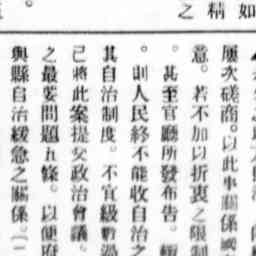 如
精
之
。
屢次磋商。以此事關係國
意。若不加以折衷之限制
。甚至官廳所發布告。
。則人民終不能收自治之
其自治制度。不宜級數過
己將此案提交政治會議。
之最要問題五條。以便府
與縣自治緩急之關係。（一